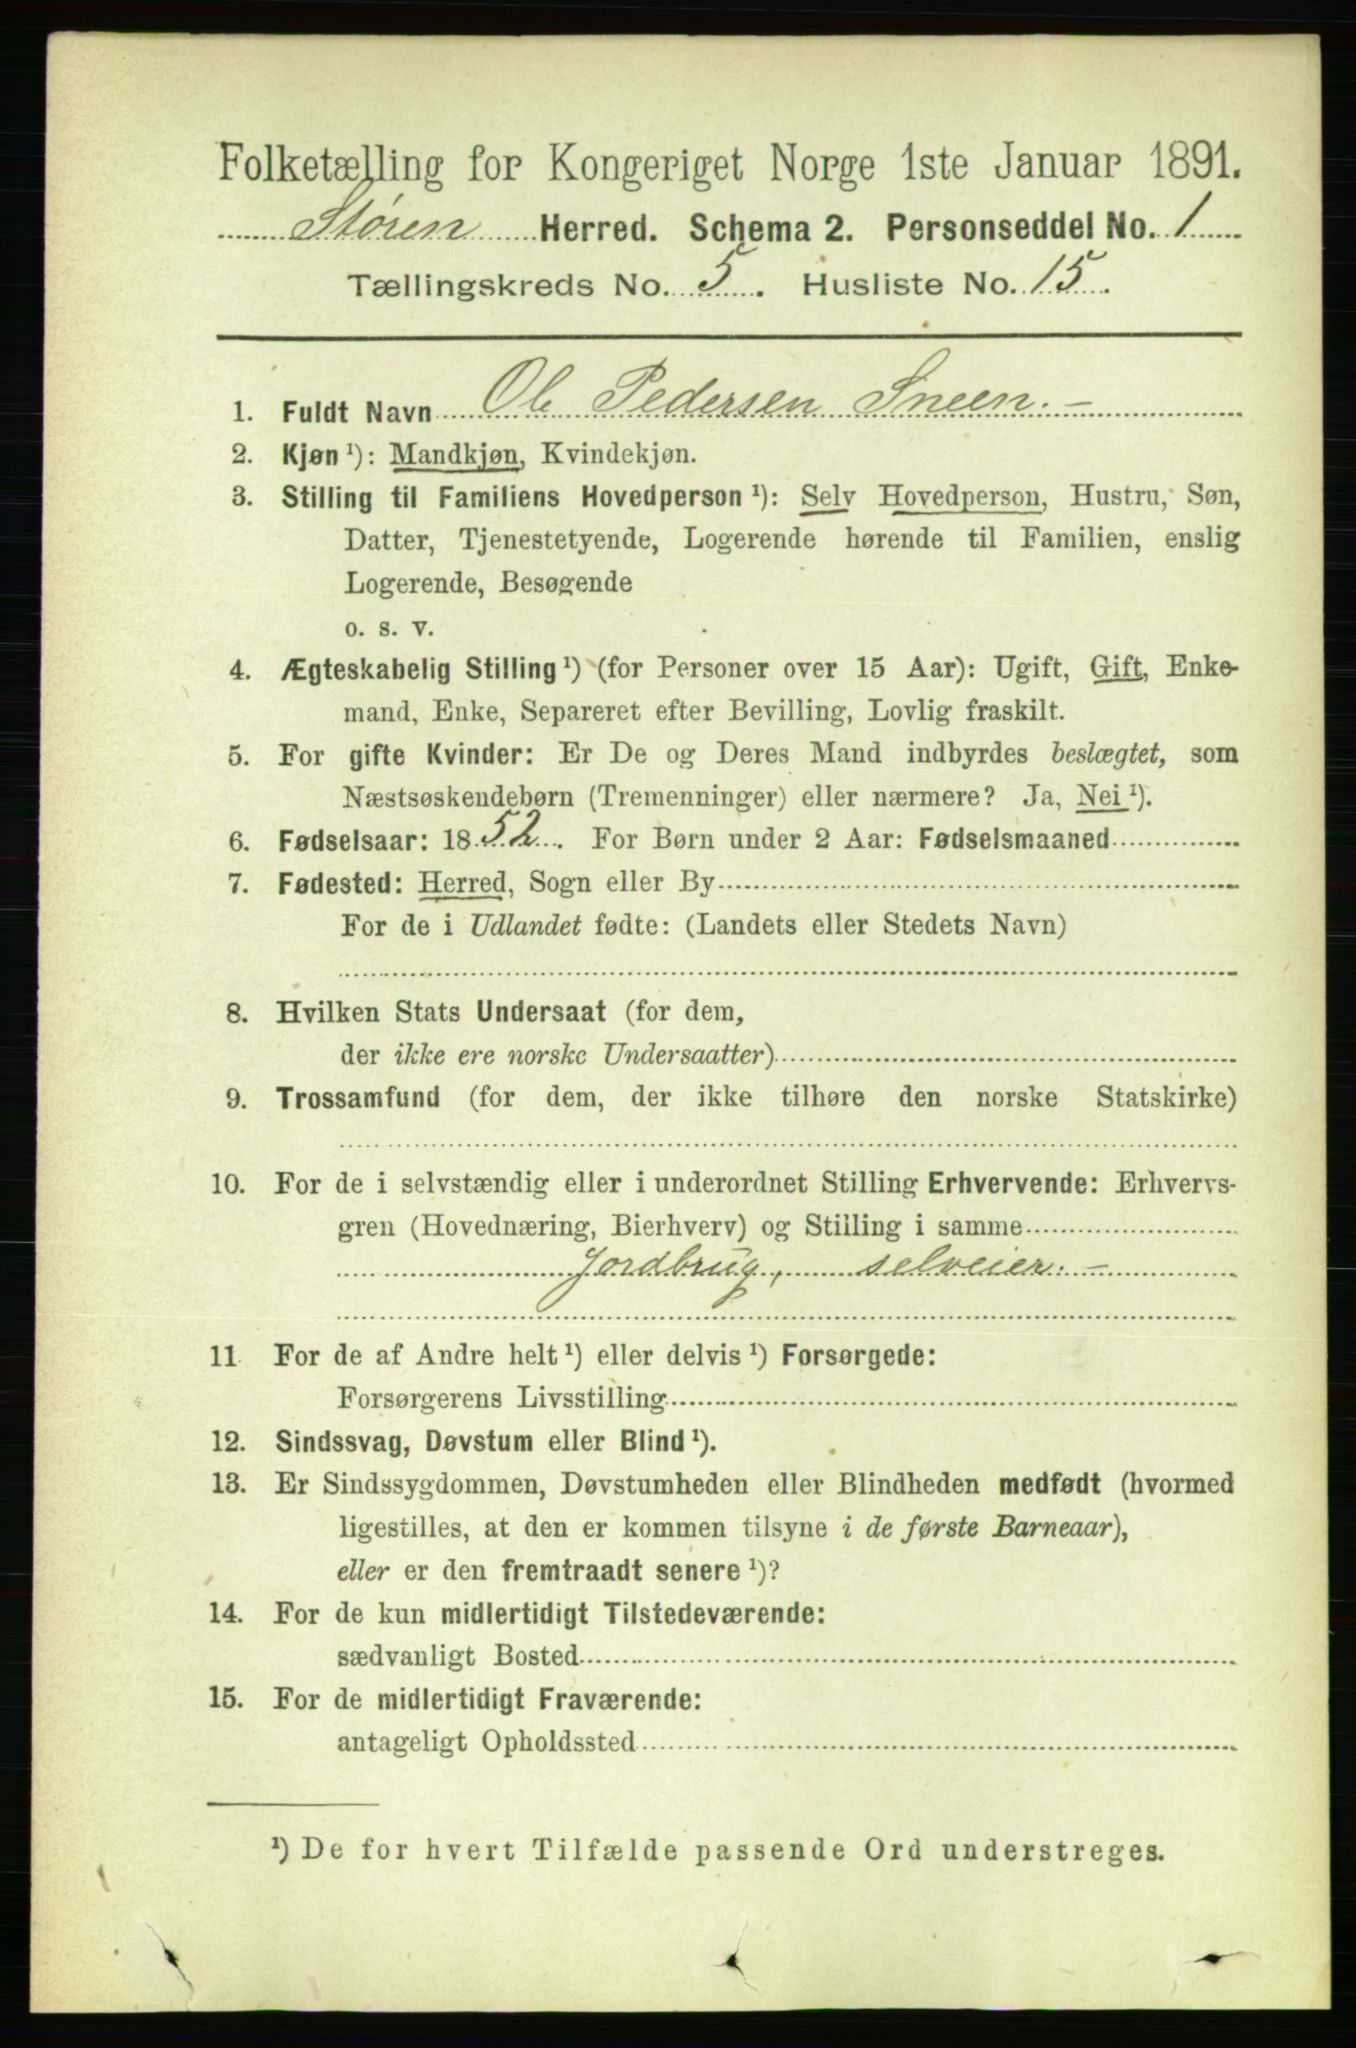 Folketælling for Kongeriget Norge 1ste Januar 1891.
Støren Herred. Schema 2. Personseddel No. 1
Tællingskreds No. 5. Husliste No. 15.
1. Fuldt Navn Ole Pedersen Sneen. -
2. Kjøn ¹): Mandkjøn, Kvindekjøn.
3. Stilling til Familiens Hovedperson ¹): Selv Hovedperson, Hustru, Søn,
Datter, Tjenestetyende, Logerende hørende til Familien, enslig
Logerende, Besøgende
o. s. v.
4. Ægteskabelig Stilling ¹) (for Personer over 15 Aar): Ugift, Gift, Enke-
mand, Enke, Separeret efter Bevilling, Lovlig fraskilt.
5. For gifte Kvinder: Er De og Deres Mand indbyrdes beslægtet, som
Næstsøskendebørn (Tremenninger) eller nærmere? Ja, Nei ¹).
6. Fødselsaar: 1852. For Børn under 2 Aar: Fødselsmaaned
7. Fødested: Herred, Sogn eller By
For de i Udlandet fødte: (Landets eller Stedets Navn)
8. Hvilken Stats Undersaat (for dem,
der ikke ere norske Undersaatter)
9. Trossamfund (for dem, der ikke tilhøre den norske Statskirke)
10. For de i selvstændig eller i underordnet Stilling Erhvervende: Erhvervs-
gren (Hovednæring, Bierhverv) og Stilling i samme
Jordbrug, selveier. -
11 For de af Andre helt ¹) eller delvis ¹) Forsørgede:
Forsørgerens Livsstilling
12. Sindssvag, Døvstum eller Blind ¹).
13. Er Sindssygdommen, Døvstumheden eller Blindheden medfødt (hvormed
ligestilles, at den er kommen tilsyne i de første Barneaar),
eller er den fremtraadt senere ¹)?
14. For de kun midlertidigt Tilstedeværende:
sædvanligt Bosted
15. For de midlertidigt Fraværende:
antageligt Opholdssted
¹) De for hvert Tilfælde passende Ord understreges.